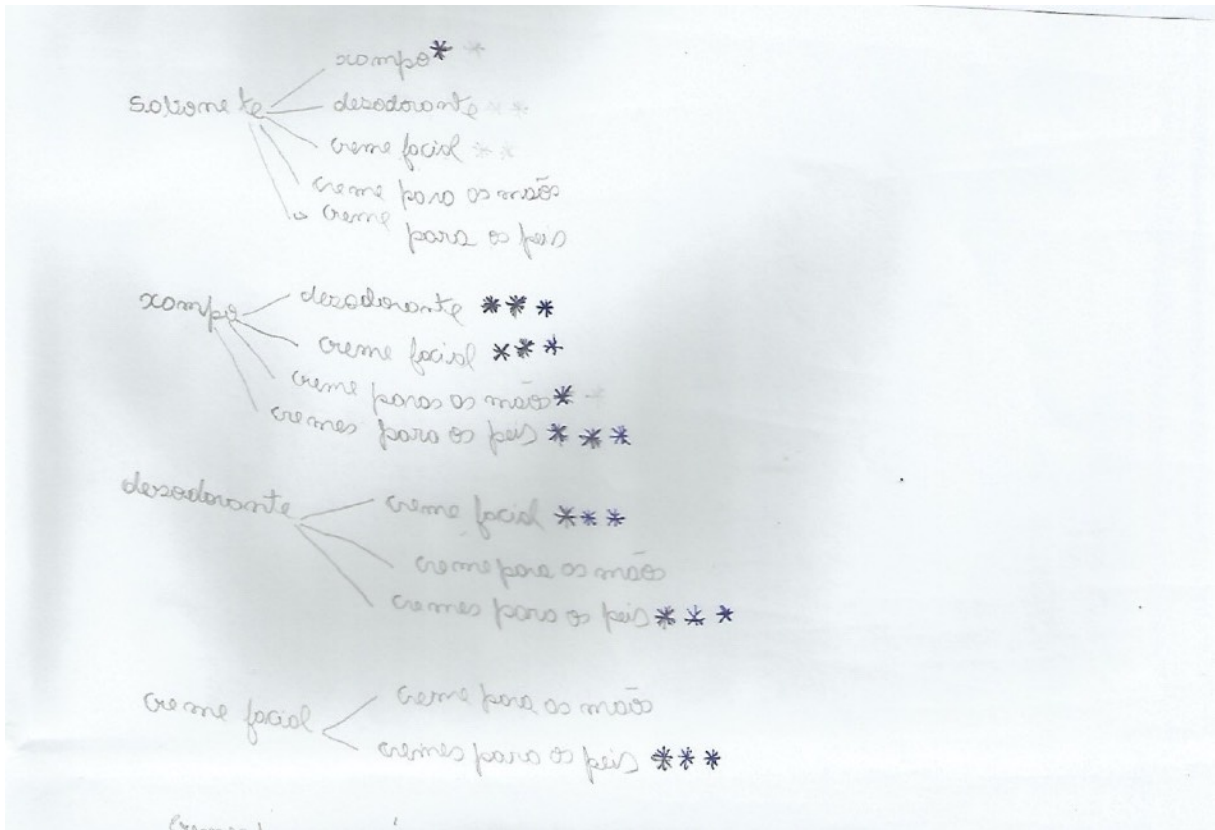 xompo*
sabonete desodorante
creme facial
creme para as mãos
creme
para os peis
xompo desodorante ***
creme facial ***
creme paras as mãos *
cremes para os peis ***
desodorante creme facial ***
creme para as mãos
cremes para os peis ***
creme facial creme para as mãos
cremes para os peis ***